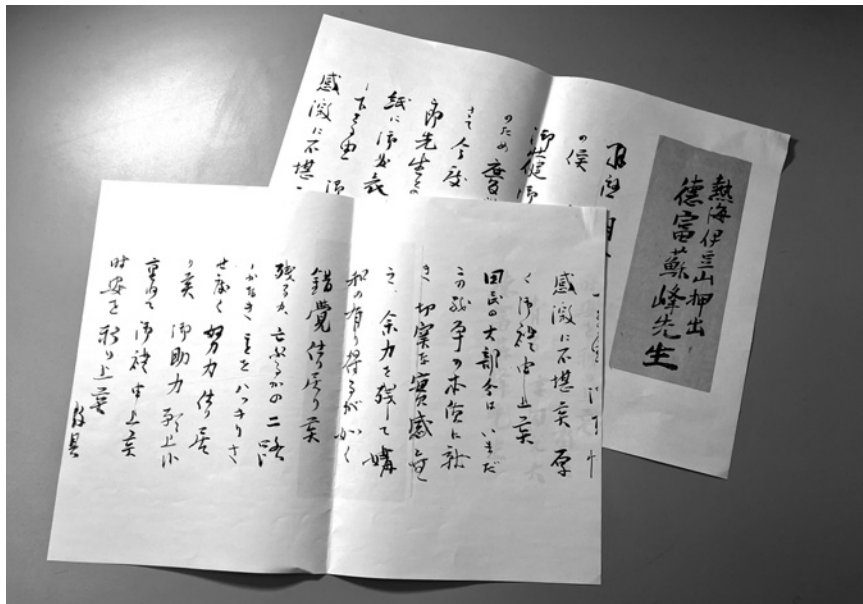 熱海伊豆山押出
德富蘇峰先生
の候
御壮健御
のため慶
さて今度
郎先生との
紙に御発表
感激に不堪
感激に不堪候 厚
く御禮申上候
国民の大部分はいまだ
この戦争の本質に就
き 切実な實感
余力を残して 媾
和の有り得るがごとく
錯覺仕り居り候
残るか、亡ぶるかの二路
しかなき事をハッキリさ
せ度く努力仕り居
り候 御助力願上
重ねて御禮申上候
を祈り上候
敬具